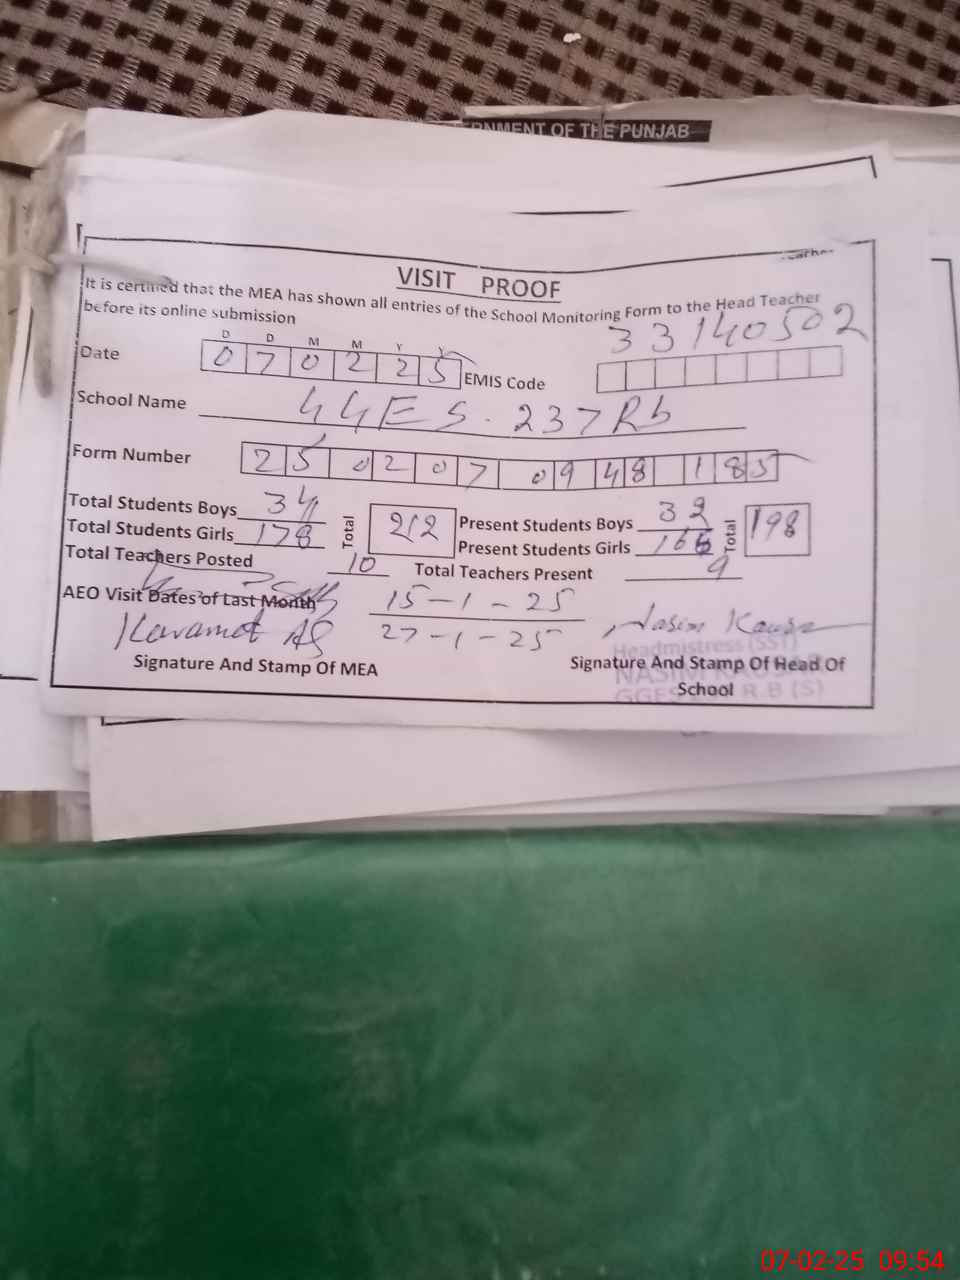 GOVERNMENT OF THE PUNJAB
VISIT PROOF
It is certified that the MEA has shown all entries of the School Monitoring Form to the Head Teacher
before its online submission
33140502
D D M M Y Y
Date 070225 EMIS Code
School Name GGES. 237 Rb
Form Number 25 0207 0948 185
Total Students Boys 34 Total 212 Present Students Boys 32 Total 198
Total Students Girls 178 Present Students Girls 166
Total Teachers Posted 10 Total Teachers Present 9
AEO Visit Dates of Last Month 15-1-25
27-1-25
Karamat Nasim Kausar
Headmistress (SST)
Signature And Stamp Of MEA Signature And Stamp Of Head Of
NASIM KAUSAR
School
GGES R.B (S)
07-02-25 09:54